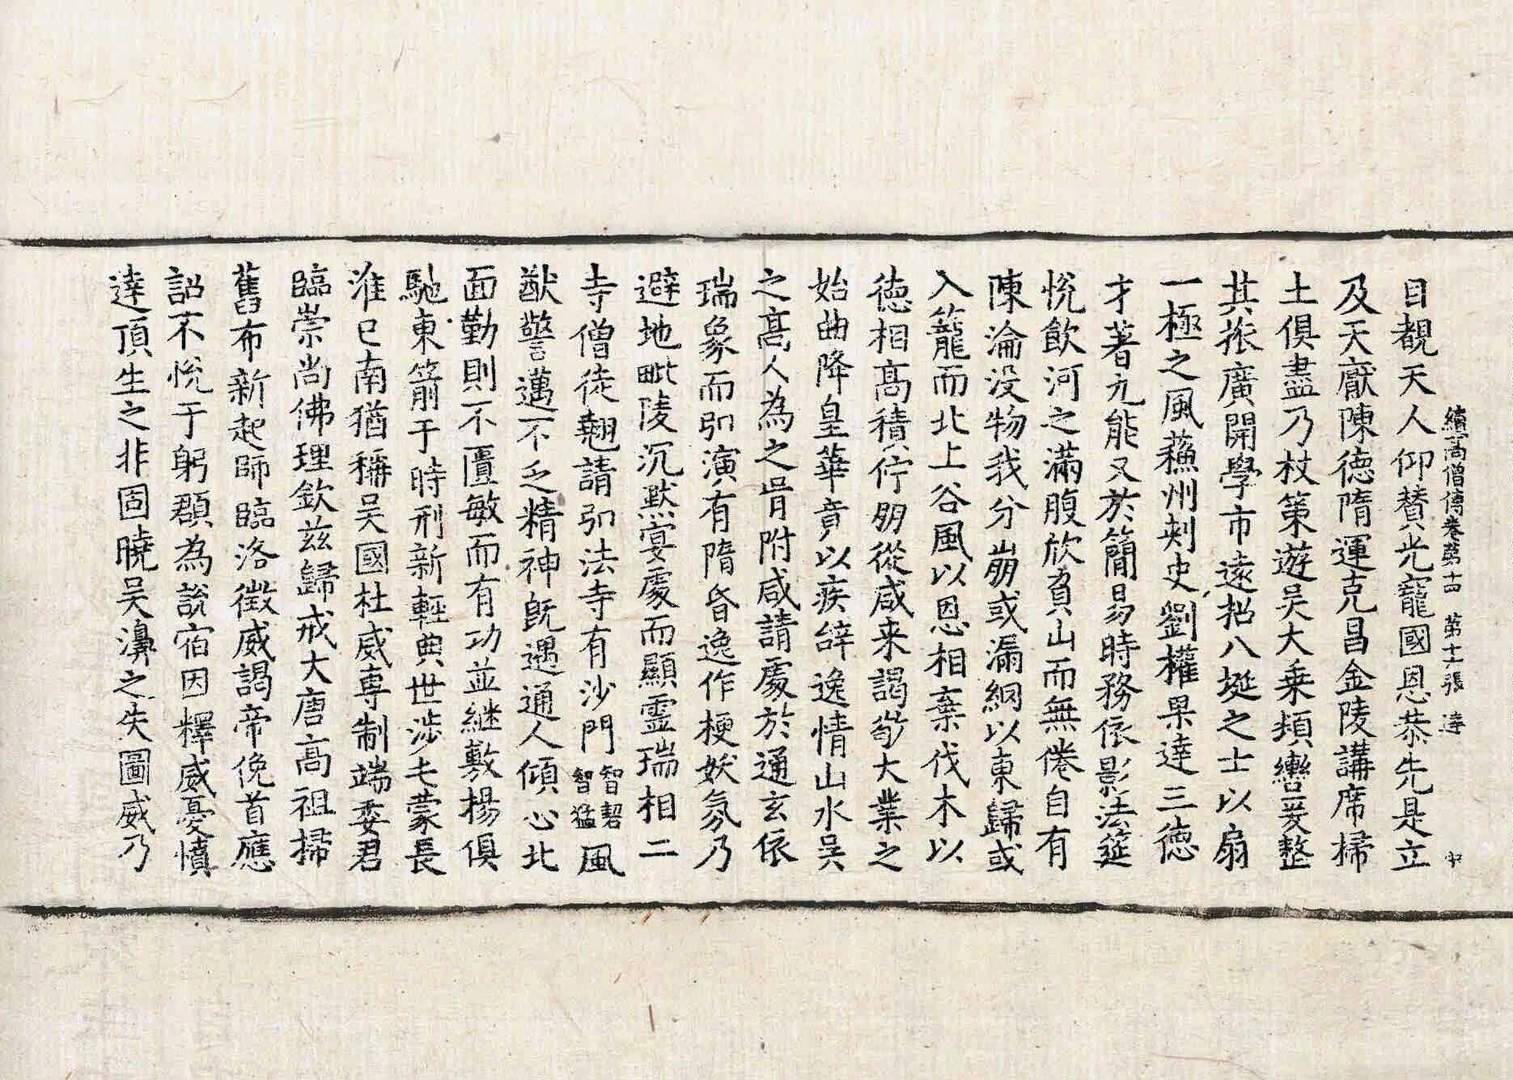 續高僧傳卷第十四　第十二張　達
目覩天人仰賛光寵國恩恭先是立
及天猒陳德隋運克昌金陵講席掃
土俱盡乃杖策遊吳大乗頖轡爰整
其振廣開學市遠招八埏之士以扇
一極之風蘇州刺史劉權果達三德
才著九能又於簡易時務依影法莚
恱飲河之滿腹欣負山而無倦自有
陳淪没物我分崩或漏網以東歸或
入籠而北上谷風以恩相棄伐木以
德相高積佇朋從咸来謁敬大業之
始曲降皇華竟以疾辝逸情山水吳
之高人為之肯附咸請處於通玄依
瑞象而弘演有隋昏逸作梗妖氛乃
避地毗陵沉黙宴處而顯靈瑞相二
寺僧徒翹請弘法寺有沙門智琚智猛風
猷警邁不乏精神旣遇通人傾心北
面勤則不匱敏而有功並継敷揚俱
馳東箭于時刑新輕典世涉屯蒙長
淮已南猶稱吳國杜威専制端委君
臨崇尚佛理欽兹歸戒大唐高祖掃
舊布新起師臨洛徵威謁帝俛首應
詔不恱于躬顧為說宿因釋威憂憤
達頂生之非固曉吳濞之失圖威乃